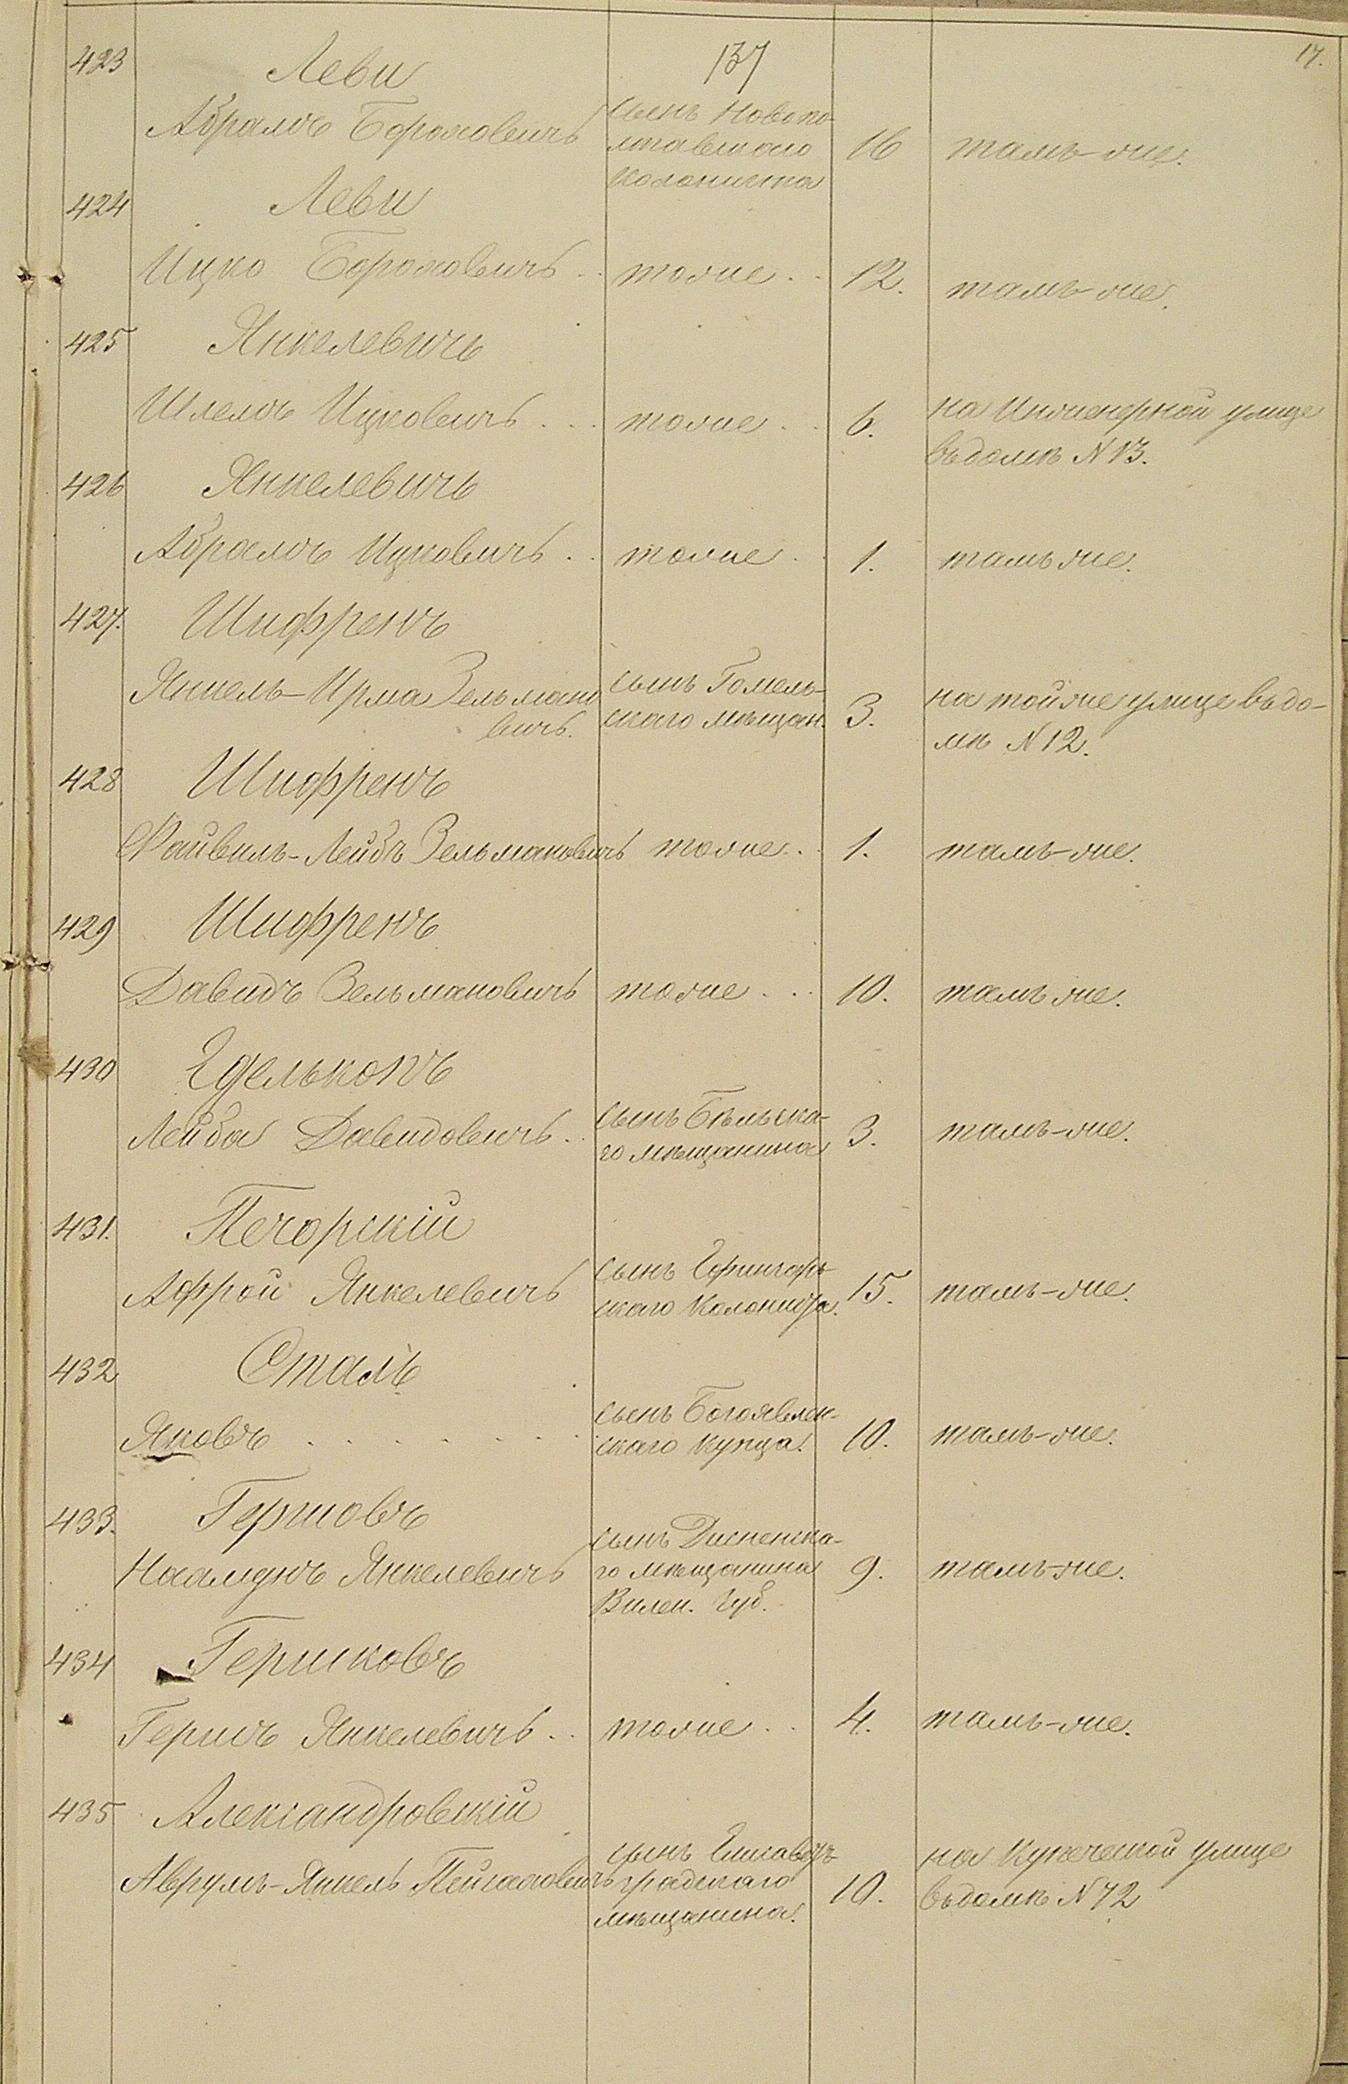 137
17.
423 Леви
Абрамъ Бороховичъ сынъ Новопо-
лтавскаго
колониста 16 тамъ-же.
424 Леви
Ицко Бороховичъ .. тоже .. 12. тамъ-же.
425 Янкелевичъ
Шлемъ Ицковичъ ... тоже .. 6. на Инженерной улице
въ домѣ N 13.
426 Янкелевичъ
Абрамъ Ицковичъ .. тоже .. 1. тамъ же.
427. Шифренъ
Янкель-Ирма Зельмано
вичъ. сынъ Гомель-
скаго мѣщан. 3. на той же улице въ до-
мѣ N 12.
428 Шифренъ
Файвиль-Лейбъ Зельмановичъ тоже .. 1. тамъ-же.
429 Шифренъ
Давидъ Зельмановичъ тоже ... 10. тамъ же.
430 Едельконъ
Лейба Давидовичъ .. сынъ Бѣльска-
го мѣщанина 3. тамъ-же.
431. Печорскій
Афрой Янкелевичъ сынъ
скаго Колониста. 15. тамъ-же.
432 Сталь
Яковъ . . . . . . . сынъ Богоявлен-
скаго купца. 10. тамъ-же.
433. Гершовъ
Янкелевичъ сынъ Дисненска-
го мѣщанина
Вилен. Губ. 9. тамъ-же.
434 Гершковъ
Гершъ Янкелевичъ .. тоже .. 4. тамъ-же.
435 Александровскій
Аврумъ-Янкель сынъ Елисавет-
градскаго
мѣщанина. 10. на Купеческой улице
въ домѣ N 72